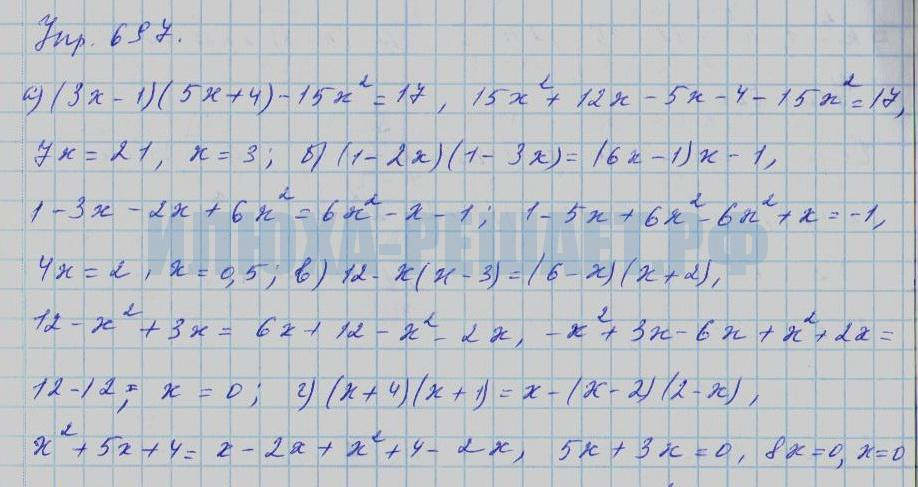 Упр. 697.
а) (3x - 1)(5x + 4) - 15x² = 17, 15x² + 12x - 5x - 4 - 15x² = 17,
7x = 21, x = 3; б) (1 - 2x)(1 - 3x) = (6x - 1)x - 1,
1 - 3x - 2x + 6x² = 6x² - x - 1; 1 - 5x + 6x² - 6x² + x = -1,
ИЛЮХА-РЕШАЕТ.РФ
4x = 2, x = 0,5; в) 12 - x(x - 3) = (6 - x)(x + 2),
12 - x² + 3x = 6x + 12 - x² - 2x, -x² + 3x - 6x + x² + 2x =
12 - 12; x = 0; г) (x + 4)(x + 1) = x - (x - 2)(2 - x),
x² + 5x + 4 = x - 2x + x² + 4 - 2x, 5x + 3x = 0, 8x = 0, x = 0